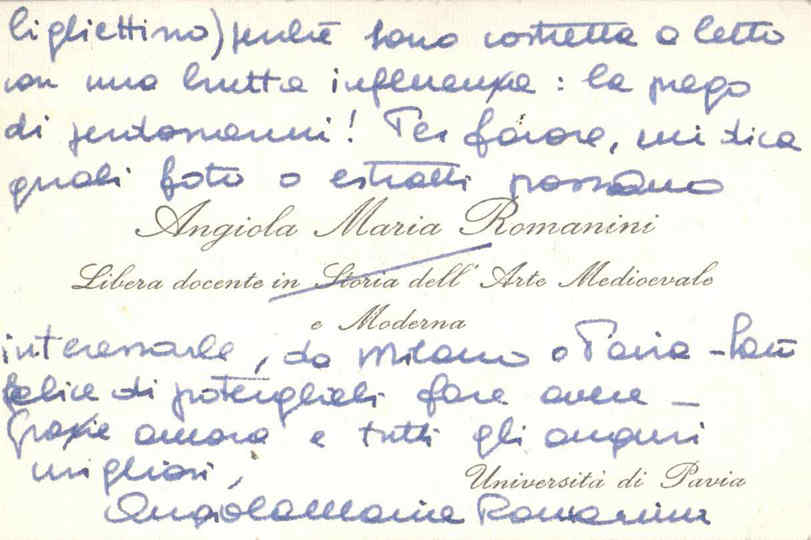 bigliettino) perché sono costretta a letto
con una brutta influenza: la prego
di perdonarmi! Per favore, mi dica
quali foto o estratti possano
Angiola Maria Romanini
Libera docente in Storia dell' Arte Medioevale
e Moderna
interessarle, da Milano o Pavia - Sarò
felice di poterglieli fare avere _
Grazie ancora e tutti gli auguri
migliori,
Università di Pavia
Angiola Maria Romanini